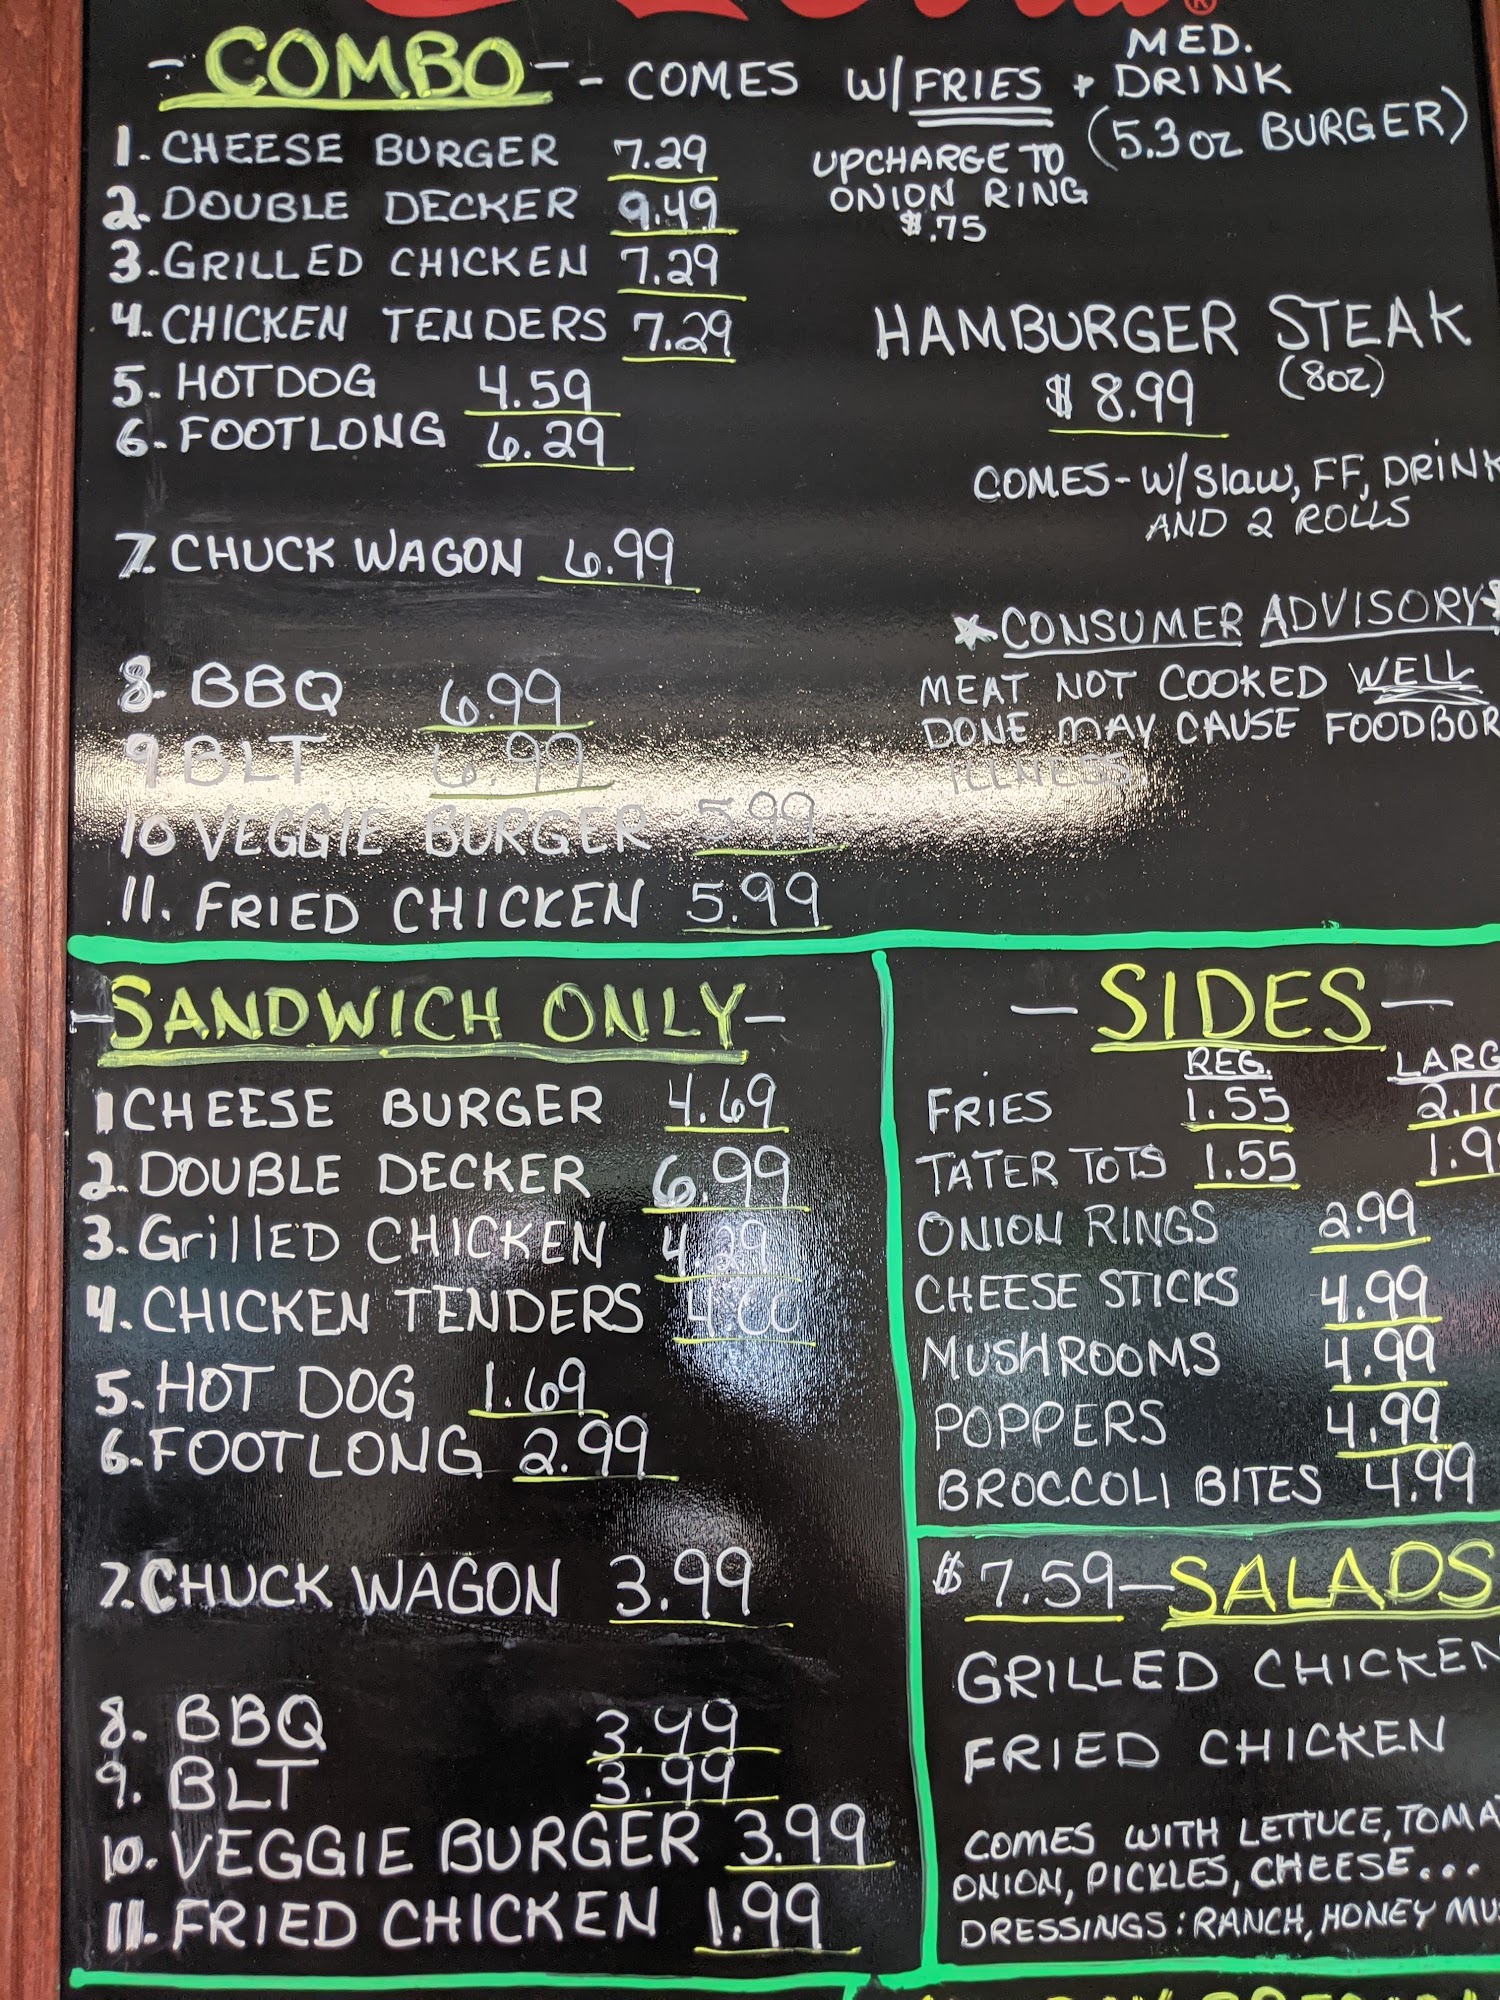 -COMBO-- COMES W/FRIES + MED. DRINK
(5.3oz BURGER)
1. CHEESE BURGER 7.29
2. DOUBLE DECKER 9.49
3. GRILLED CHICKEN 7.29
4. CHICKEN TENDERS 7.29
5. HOTDOG 4.59
6. FOOTLONG 6.29
7. CHUCK WAGON 6.99
8. BBQ 6.99
9 BLT 6.99
10 VEGGIE BURGER 5.99
11. FRIED CHICKEN 5.99
UPCHARGE TO
ONION RING
$.75
HAMBURGER STEAK
$8.99 (8oz)
COMES-W/Slaw, FF, DRINK
AND 2 ROLLS
*CONSUMER ADVISORY*
MEAT NOT COOKED WELL
DONE MAY CAUSE FOODBOR
ILLNESS
-SANDWICH ONLY-
1 CHEESE BURGER 4.69
2. DOUBLE DECKER 6.99
3. GrillED CHICKEN 4.29
4. CHICKEN TENDERS
5. HOT DOG 1.69
6. FOOTLONG 2.99
7. CHUCK WAGON 3.99
8. BBQ 3.99
9. BLT 3.99
10. VEGGIE BURGER 3.99
11. FRIED CHICKEN 1.99
-SIDES-
REG. LARG
FRIES 1.55 2.10
TATER TOTS 1.55 1.9
ONION RINGS 2.99
CHEESE STICKS 4.99
MUSHROOMS 4.99
POPPERS 4.99
BROCCOLI BITES 4.99
$7.59-SALADS
GRILLED CHICKEN
FRIED CHICKEN
COMES WITH LETTUCE, TOMA
ONION, PICKLES, CHEESE...
DRESSINGS: RANCH, HONEY MUS